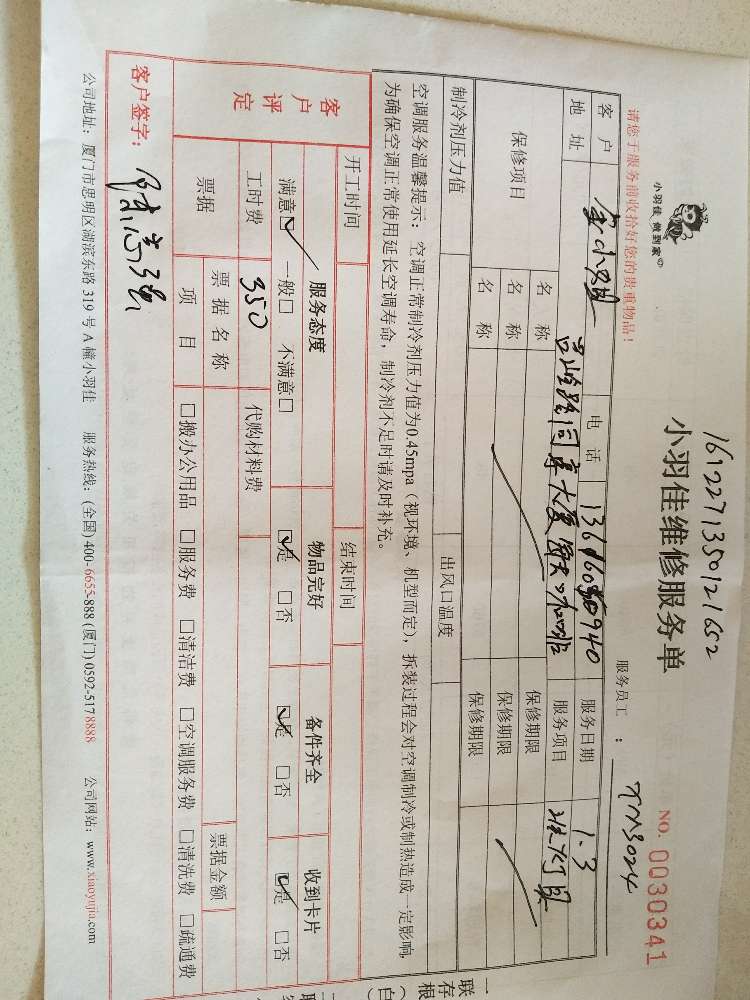 1612271350121652
小羽佳 做到家
小羽佳维修服务单
NO. 0030341
请您于服务前收拾好您的贵重物品！
服务员工 ： XN3024
客 户 电 话 服务日期 1.3
地 址 服务项目
保修项目 名 称 保修期限
名 称 保修期限
名 称 保修期限
制冷剂压力值 出风口温度
空调服务温馨提示： 空调正常制冷剂压力值为0.45mpa（视环境、机型而定），拆装过程会对空调制冷或制热造成一定影响，
为确保空调正常使用延长空调寿命，制冷剂不足时请及时补充。
开工时间 结束时间
客 户 评 定
服务态度 物品完好 备件齐全 收到卡片
满意☑ 一般□ 不满意□ ☑是 □否 ☑是 □否 ☑是 □否
工时费 350 代购材料费
票据 票 据 名 称 票据金额
项 目 □搬办公用品 □服务费 □清洁费 □空调服务费 □清洗费 □疏通费
客户签字：
公司地址：厦门市思明区湖滨东路 319 号 A 幢小羽佳 服务热线：(全国) 400-6655-888 (厦门) 0592-517 8888 公司网站：www.xiaoyujia.com
一联
存根
（白